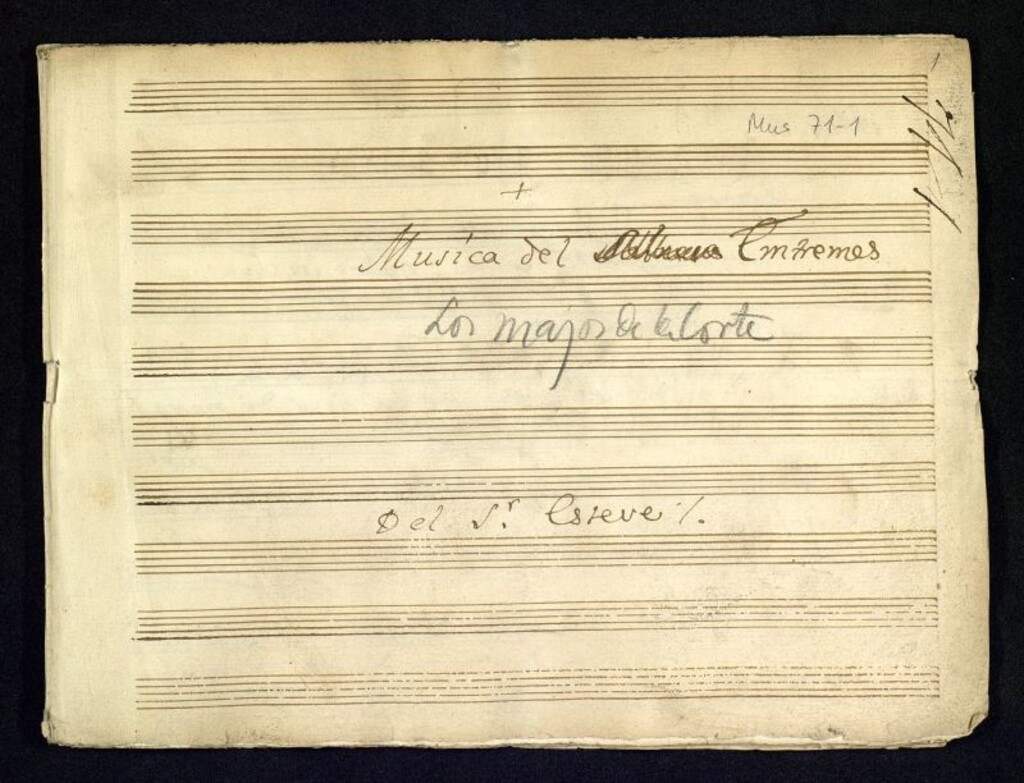 1
Mus 71-1
+
Musica del Entremes
Los majos de la Corte
Del S.r Esteve %.